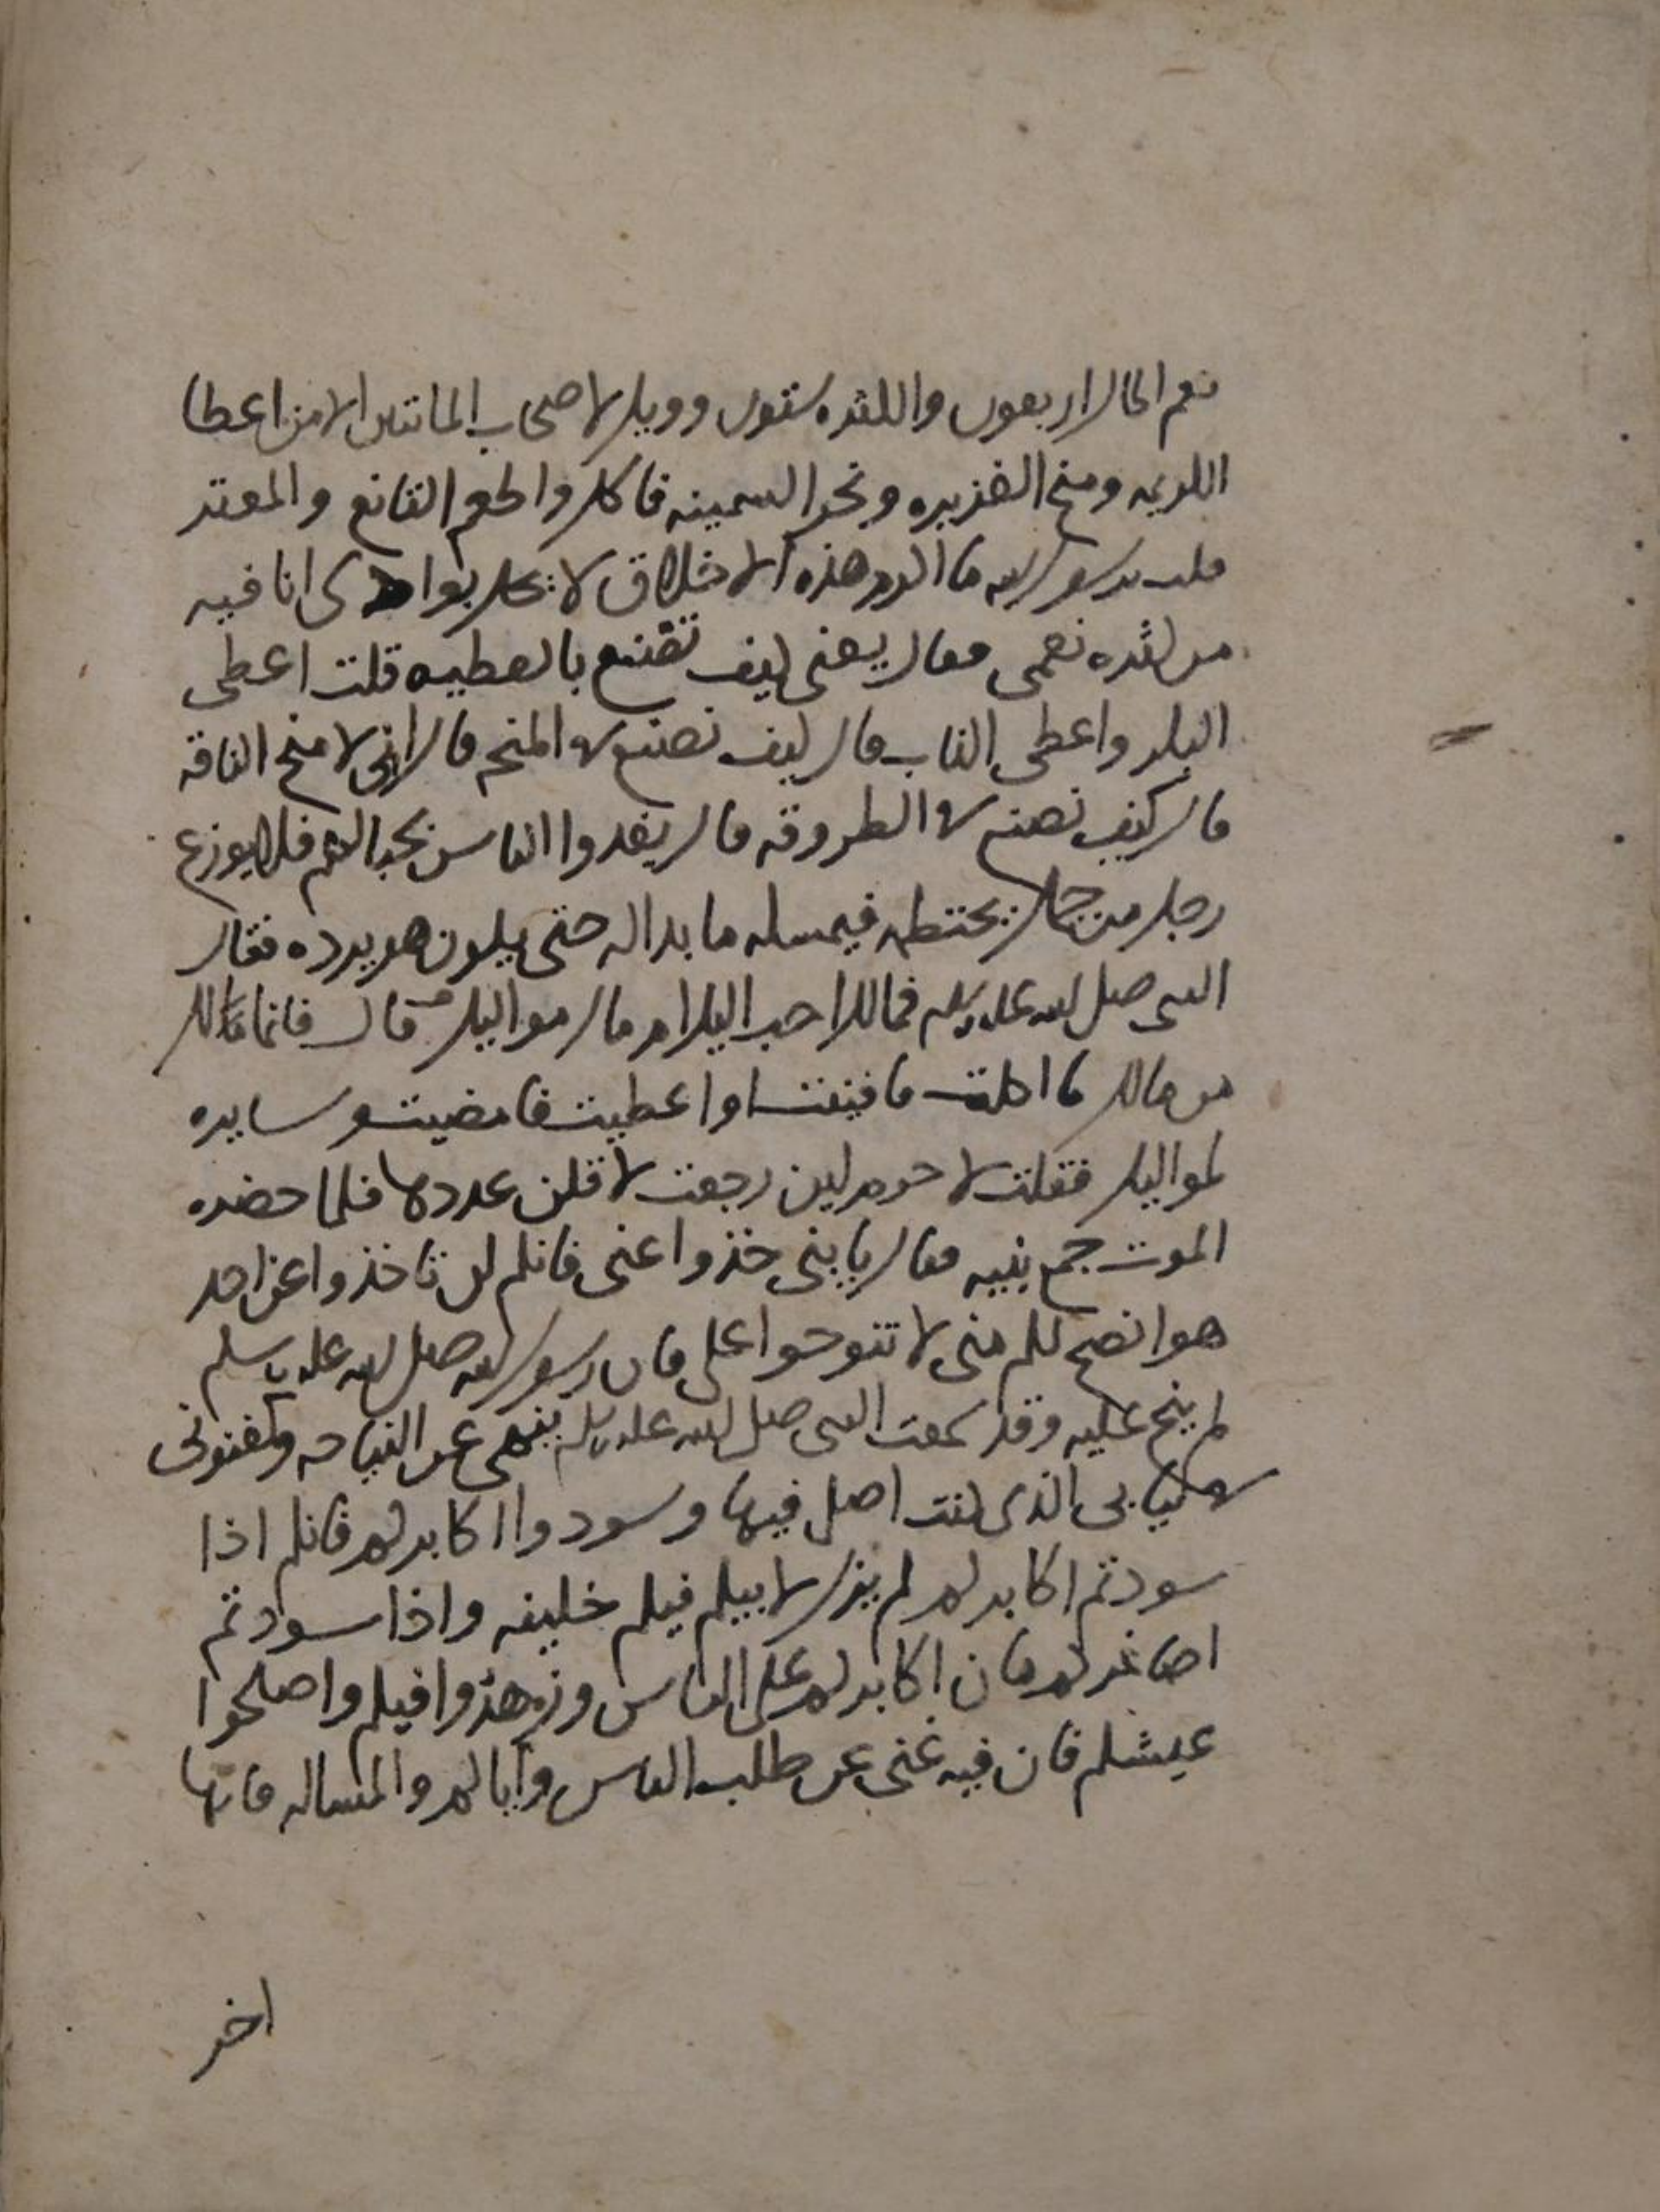 نعم المال اربعون والكثره ستون وويل لاصحاب المائتين الا من اعطا
الكريمه ومنح الغزيره ونحر السمينه فاكل واطعم القانع والمعتر
قلت يرسول الله ما اكرم هذه الاخلاق لا يحل بوادى انا فيه
من كثره نعمى فقال يعنى كيف تصنع بالعطيه قلت اعطى
البكر واعطى الناب قال كيف تصنع فى المنحه قال انى لامنح الناقه
قال كيف تصنع فى الطروقه قال يغدوا الناس بحبالهم فلا يوزع
رجل من جمل يختطمه فيمسكه ما بدا له حتى يكون هو يرده فقال
النبى صلى الله عليه وسلم فمالك احب اليك ام مال مواليك قال فانما مالك
من مالك ما اكلت فافنيت او اعطيت فامضيت وسايره
لمواليك فقلت لا جرم لين رجعت لاقلن عددها فلما حضره
الموت جمع بنيه فقال يا بنى خذوا عنى فانكم لن تاخذوا عن احد
هو انصح لكم منى لا تنوحوا على فان رسول الله صلى الله عليه وسلم
لم ينح عليه وقد سمعت النبى صلى الله عليه وسلم ينهى عن النياحه وكفنونى
فى ثيابى الذى كنت اصلى فيها وسودوا اكابركم فانكم اذا
سودتم اكابركم لم يزل لابيكم فيكم خليفه واذا سودتم
اصاغركم هان اكابركم على الناس وزهدوا فيكم واصلحوا
عيشكم فان فيه غنى عن طلب الناس واياكم والمساله فانها
اخر